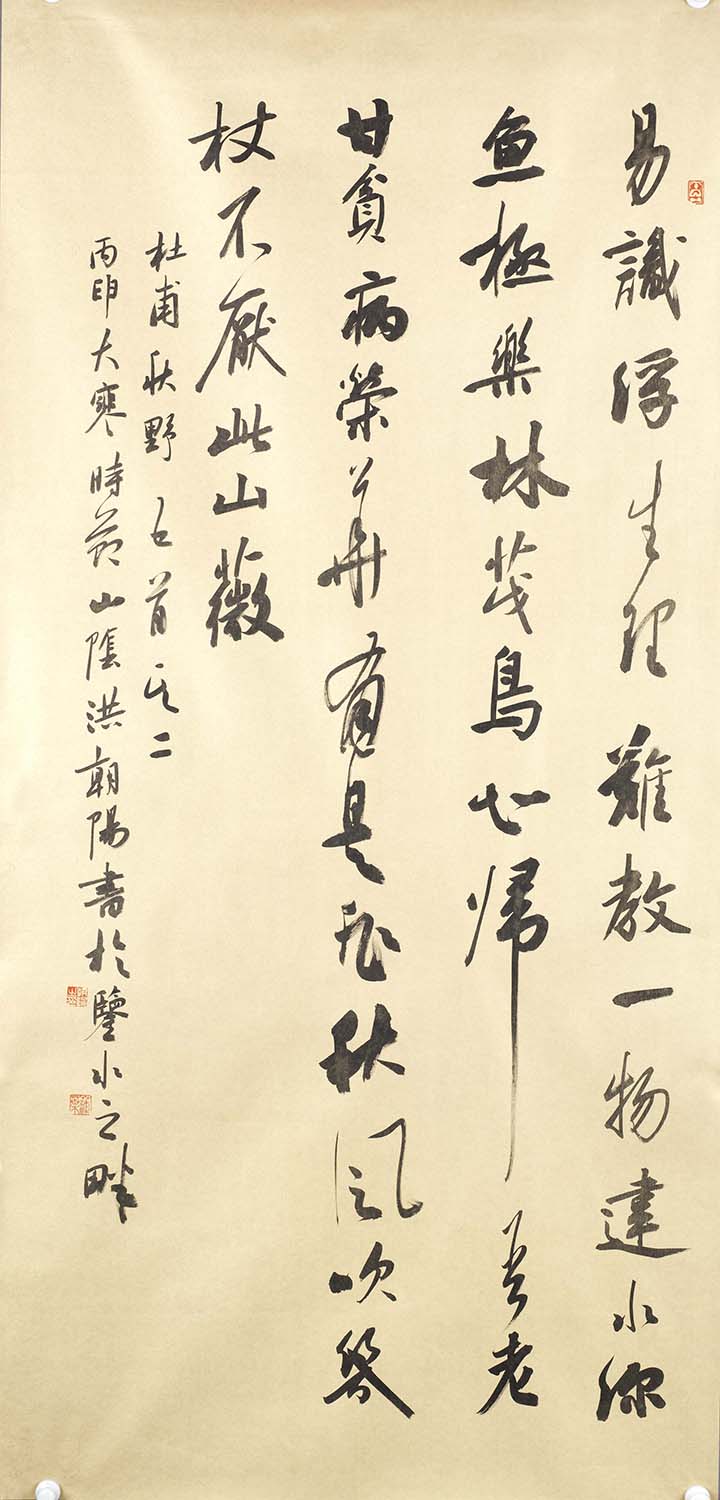 易識浮生理難教一物違水深
鱼極樂林茂鳥知帰吾老
甘貧病榮華有是非秋風吹幾
杖不厭此山薇
杜甫秋野五首其二
丙申大寒時節山陰洪朝陽書於鑒水之畔